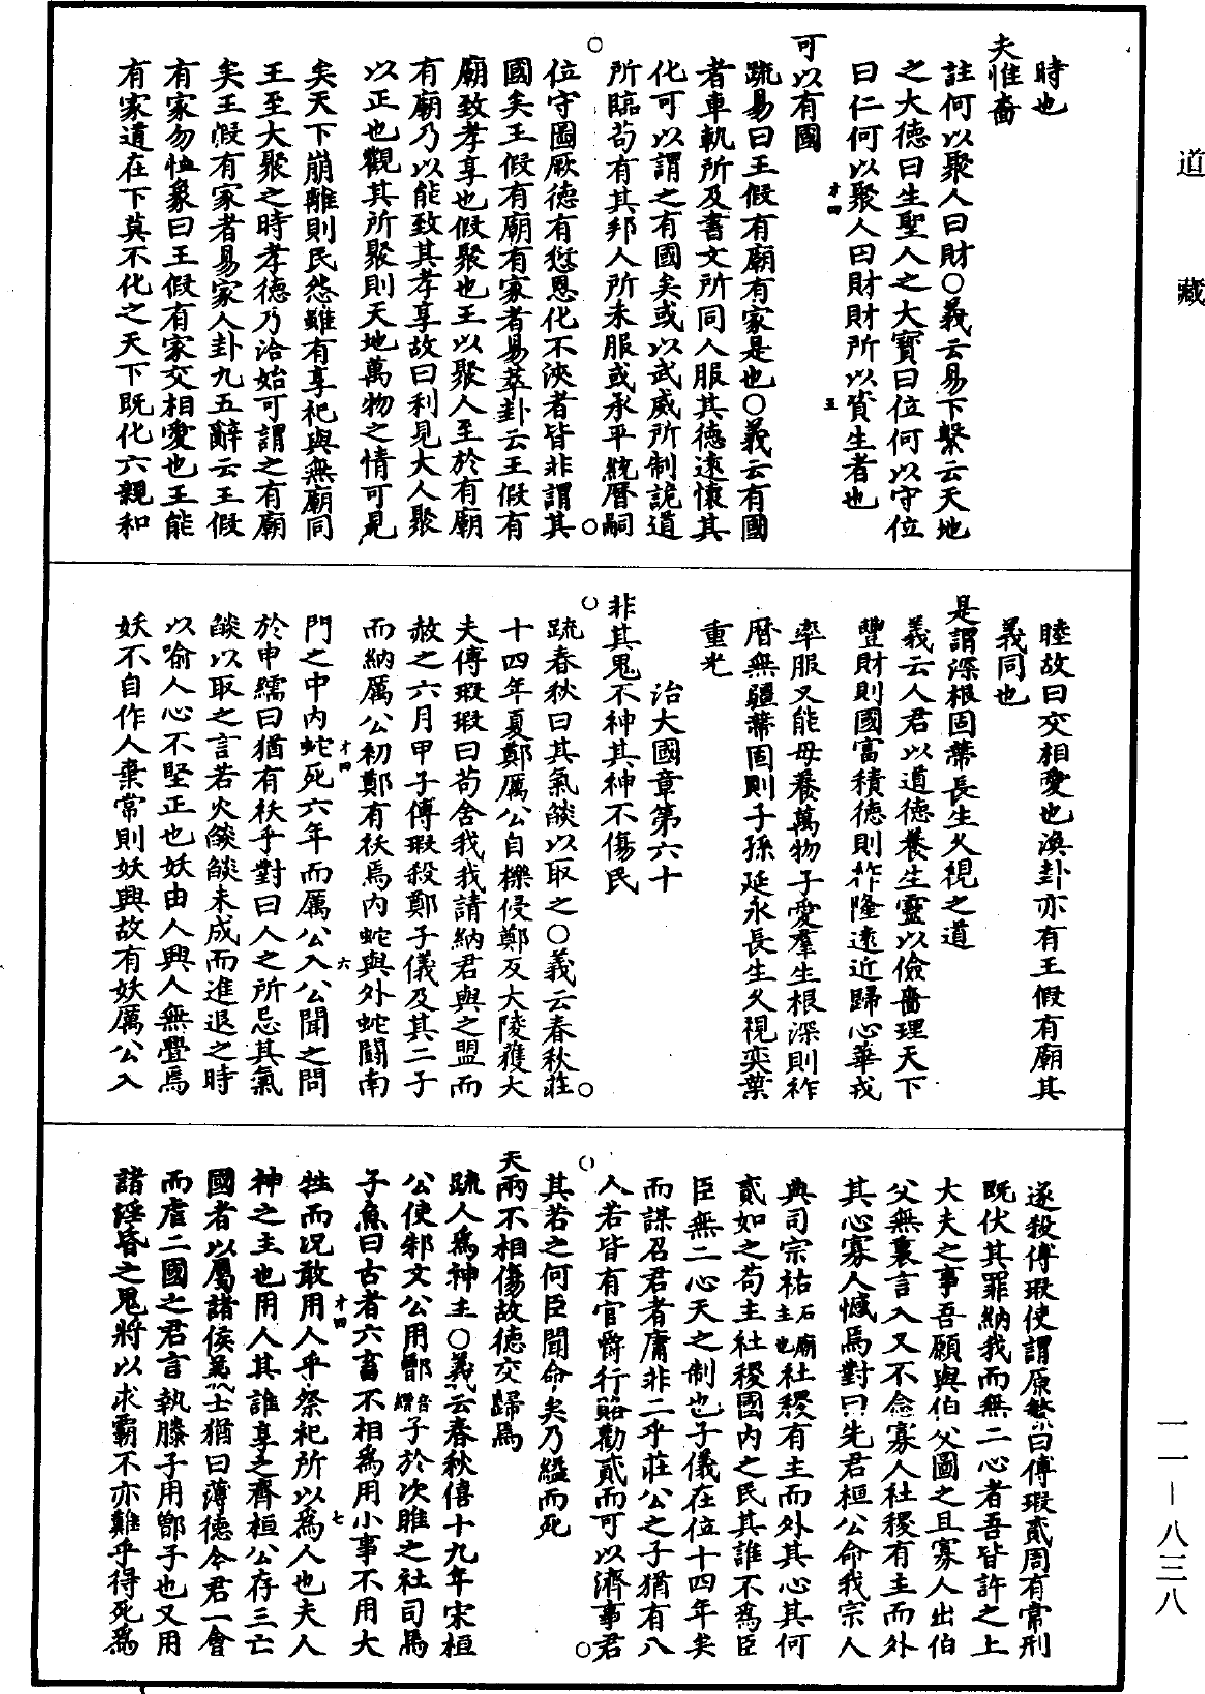 道藏
時也
夫惟嗇
註何以聚人曰財〇義云易下繫云天地
之大德曰生聖人之大寶曰位何以守位
曰仁何以聚人曰財財所以資生者也
才四
五
可以有國
疏易曰王假有廟有家是也〇義云有國
者車軌所及書文所同人服其德遠懷其
化可以謂之有國矣或以武威所制詭道
所臨苟有其邦人所未服或承平統曆嗣
位守圖厥德有愆恩化不浹者皆非謂其
國矣王假有廟有家者易萃卦云王假有
廟致孝享也假聚也王以聚人至於有廟
有廟乃以能致其孝享故曰利見大人聚
以正也觀其所聚則天地萬物之情可見
矣天下崩離則民怨雖有享祀與無廟同
王至大聚之時孝德乃洽始可謂之有廟
矣王假有家者易家人卦九五辭云王假
有家勿恤象曰王假有家交相愛也王能
有家道在下莫不化之天下既化六親和
睦故曰交相愛也渙卦亦有王假有廟其
義同也
是謂深根固蔕長生久視之道
義云人君以道德養生靈以儉嗇理天下
豐財則國富積德則祚隆遠近歸心華戎
率服又能母養萬物子愛羣生根深則祚
曆無疆蔕固則子孫延永長生久視奕葉
重光
治大國章第六十
非其鬼不神其神不傷民
疏春秋曰其氣燄以取之〇義云春秋莊
十四年夏鄭厲公自櫟侵鄭及大陵獲大
夫傅瑕瑕曰苟舍我我請納君與之盟而
赦之六月甲子傅瑕殺鄭子儀及其二子
而納厲公初鄭有祅焉內蛇與外蛇鬪南
才四
六
門之中內蛇死六年而厲公入公聞之問
於申繻曰猶有祅乎對曰人之所忌其氣
燄以取之言若火燄燄未成而進退之時
以喻人心不堅正也妖由人興人無釁焉
妖不自作人棄常則妖興故有妖厲公入
遂殺傅瑕使謂原繁曰傅瑕貳周有常刑
既伏其罪納我而無二心者吾皆許之上
大夫之事吾願與伯父圖之且寡人出伯
父無裏言入又不念寡人社稷有主而外
其心寡人憾焉對曰先君桓公命我宗人
典司宗祐石廟主也社稷有主而外其心其何
貳如之苟主社稷國內之民其誰不為臣
臣無二心天之制也子儀在位十四年矣
而謀召君者庸非二乎莊公之子猶有八
人若皆有官爵行賂勸貳而可以濟事君
其若之何臣聞命矣乃縊而死
天兩不相傷故德交歸焉
疏人為神主〇義云春秋僖十九年宋桓
公使邾文公用鄫音繒子於次睢之社司馬
子魚曰古者六畜不相為用小事不用大
才四
七
牲而况敢用人乎祭祀所以為人也夫人
神之主也用人其誰享之齊桓公存三亡
國者以屬諸侯義士猶曰薄德今君一會
而虐二國之君言執滕子用鄫子也又用
諸淫昏之鬼將以求霸不亦難乎得死為
一一-八三八